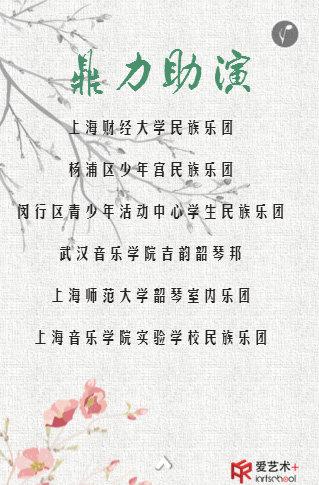 鼎力助演
上海财经大学民族乐团
杨浦区少年宫民族乐团
闵行区青少年活动中心学生民族乐团
武汉音乐学院吉韵韶琴邦
上海师范大学韶琴室内乐团
上海音乐学院实验学校民族乐团
爱艺术+
iartschool